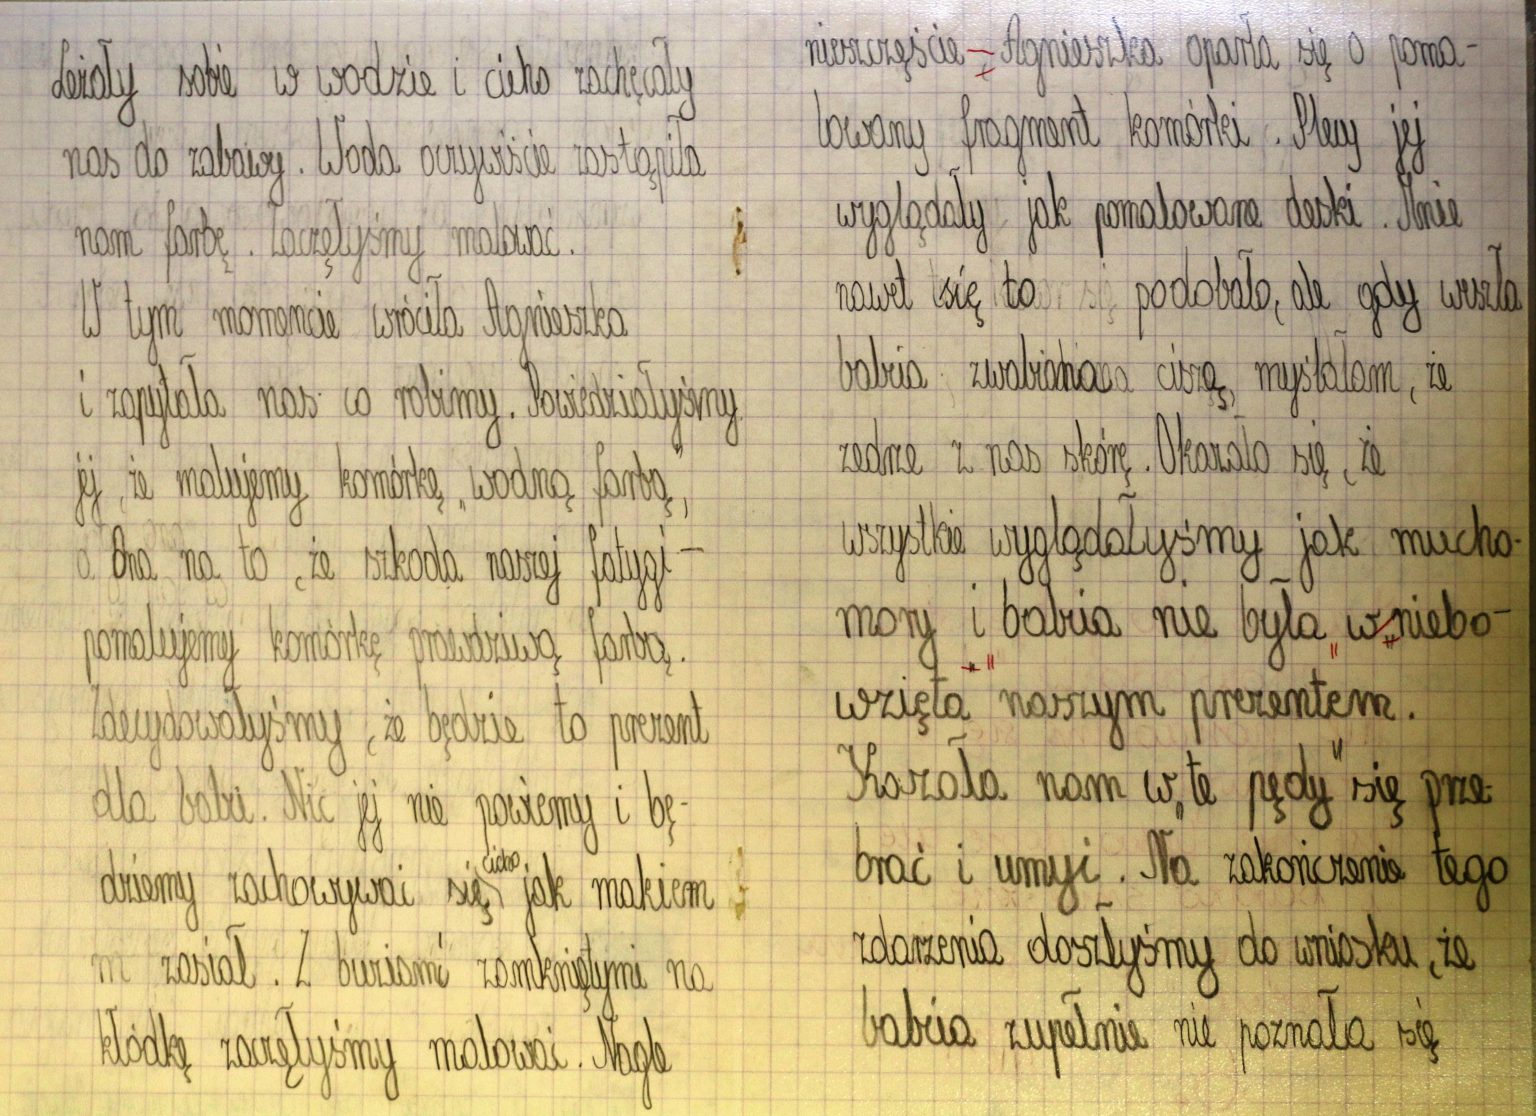 Leżały sobie w wodzie i cicho zachęcały
nas do zabawy. Woda oczywiście zastąpiła
nam farbę. Zaczęłyśmy malować.
W tym momencie wróciła Agnieszka
i zapytała nas co robimy. Powiedziałyśmy
jej, że malujemy komórkę „wodną farbą”,
a Ona na to, że szkoda naszej fatygi –
pomalujemy komórkę prawdziwą farbą.
Zdecydowałyśmy, że będzie to prezent
dla babci. Nic jej nie powiemy i bę-
dziemy zachowywać się cicho jak makiem
zasiał. Z buziami zamkniętymi na
kłódkę zaczęłyśmy malować. Nagle
nieszczęście – Agnieszka oparła się o poma-
lowany fragment komórki. Plecy jej
wyglądały jak pomalowane deski. Mnie
nawet się to podobało, ale gdy weszła
babcia zwabiona ciszą, myślałam, że
zedrze z nas skórę. Okazało się, że
wszystkie wyglądałyśmy jak mucho-
mory i babcia nie była „w niebo-
wzięta” naszym prezentem.
Kazała nam w „te pędy” się prze-
brać i umyć. Na zakończenie tego
zdarzenia doszłyśmy do wniosku, że
babcia zupełnie nie poznała się